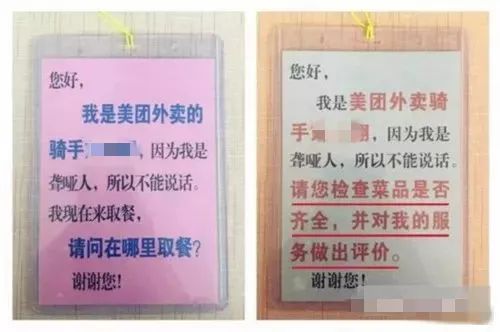 您好，
我是美团外卖的
骑手，因为我是
聋哑人，所以不能说话。
我现在来取餐，
请问在哪里取餐？
谢谢您！
您好，
我是美团外卖骑
手，因为我是
聋哑人，所以不能说话。
请您检查菜品是否
齐全，并对我的服
务做出评价。
谢谢您！